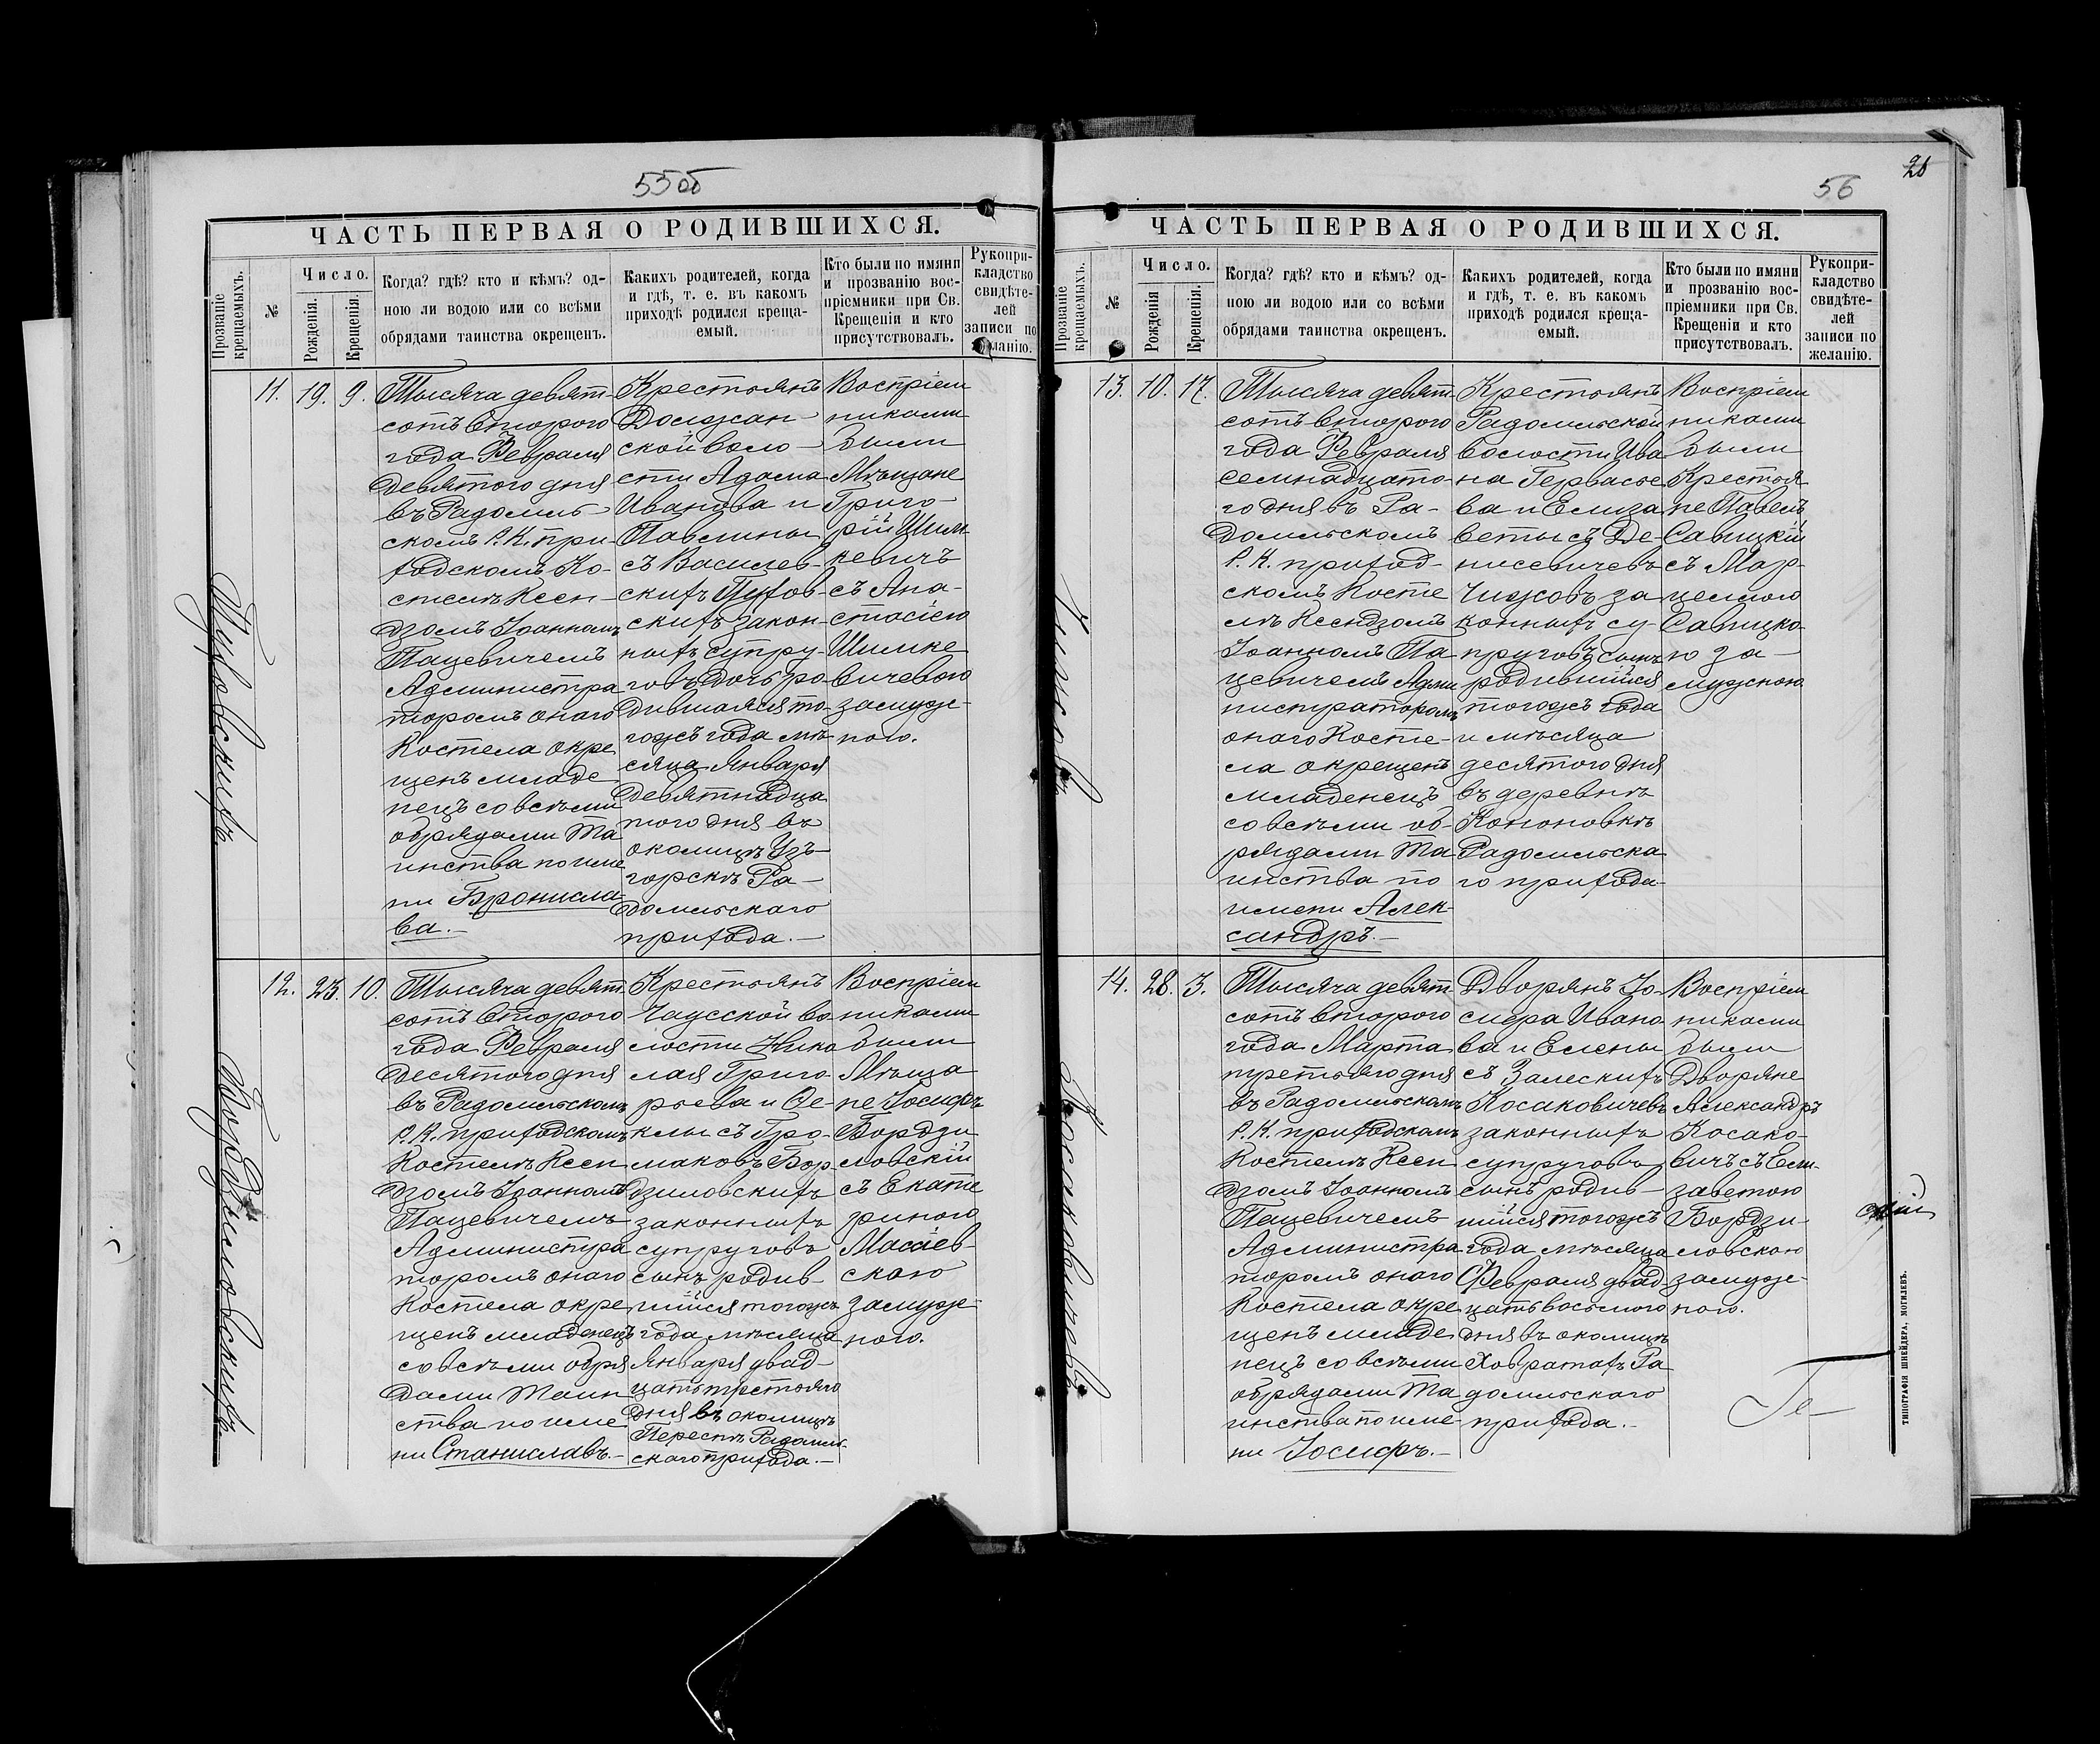 55об
ЧАСТЬ ПЕРВАЯ О РОДИВШИХСЯ.
Прозваніе крещаемыхъ.
№
Число.
Рожденія.
Крещенія.
Когда? гдѣ? кто и кѣмъ? од-
ною ли водою или со всѣми
обрядами таинства окрещенъ.
Какихъ родителей, когда
и гдѣ, т. е. въ какомъ
приходѣ родился креща-
емый.
Кто были по имяни
и прозванію вос-
пріемники при Св.
Крещеніи и кто
присутствовалъ.
Рукопри-
кладство
свидѣте-
лей
записи по
желанію.
11.
19.
9.
Тысяча девят-
сотъ второго
года Февраля
девятого дня
въ Радомль-
скомъ Р. К. при-
ходскомъ Ко-
стелѣ Ксен-
дзомъ Іоанномъ
Пацевичемъ
Администра
торомъ онаго
Костела окре
щенъ младе
нецъ со всѣми
обрядами Та
инства по име
ни Бронисла-
ва.-
Крестьянъ
Должан
ской воло-
сти Адама
Иванова и
Павлины
съ Василев-
скихъ
скихъ закон-
ныхъ супру-
говъ дочь ро
дившаяся то-
гожъ года мѣ
сяца Января
девятнадца
того дня въ
околицѣ
горскѣ Ра-
домльскаго
прихода.-
Воспріем
никами
были
Мѣщане
Григо-
рій Шим
кевичъ
съ Ана-
стасіею
Шимке
вичевою
замуж-
ною.
12.
23.
10.
Бордзиловскихъ
Тысяча девят
сотъ второго
года Февраля
десятого дня
въ Радомльскомъ
Р. К. приходскомъ
Костелѣ Ксен
дзомъ Іоанномъ
Пацевичемъ
Администра
торомъ онаго
Костела окре
щенъ младенецъ
со всѣми обря
дами Таин
ства по име
ни Станиславъ.-
Крестьянъ
Чаусской во
лости Нико
лая Григо-
рьева и Ѳе-
клы съ Гро-
маковъ Бор
дзиловскихъ
законныхъ
супруговъ
сынъ родив-
шійся тогожъ
года мѣсяца
Января двад-
цать третьяго
дня въ околицѣ
Радомль-
скаго прихода.-
Воспріем
никами
были
Мѣща
не Іосифъ
Бордзи
ловскій
съ Екате
риною
скою
замуж-
ною.
56
28
ЧАСТЬ ПЕРВАЯ О РОДИВШИХСЯ.
Прозваніе крещаемыхъ.
№
Число.
Рожденія
Крещенія.
Когда? гдѣ? кто и кѣмъ? од-
ною ли водою или со всѣми
обрядами таинства окрещенъ.
Какихъ родителей, когда
и гдѣ, т. е. въ какомъ
приходѣ родился креща-
емый.
Кто были по имяни
и прозванію вос-
пріемники при Св.
Крещеніи и кто
присутствовалъ.
Рукопри-
кладство
свидѣте-
лей
записи по
желанію.
13.
10.
17.
Чижовъ
Тысяча девят
сотъ второго
года Февраля
семнадцато-
го дня въ Ра-
домльскомъ
Р. К. приход-
скомъ Косте
лѣ Ксендзомъ
Іоанномъ Па
цевичемъ Адми
нистраторомъ
онаго Косте-
ла окрещенъ
младенецъ
со всѣми об-
рядами Та
инства по
имени Алек-
сандръ.-
Крестьянъ
Радомльской
волости Ива
на Гервасье
ва и Елиза
веты съ Де-
нисевичевъ
Чижовъ за
конныхъ су-
пруговъ сынъ
родившійся
тогожъ года
и мѣсяца
десятого дня
въ деревнѣ
Кононовкѣ
Радомльска
го прихода.
Воспріем
никами
были
Крестья
не Павелъ
Савицкій
съ Мар-
целлою
Савицко-
ю за-
мужною.
14.
28.
3.
Косаковичевъ
Тысяча девят
сотъ второго
года Марта
третьяго дня
въ Радомльскомъ
Р. К. приходскомъ
Костелѣ Ксен
дзомъ Іоанномъ
Пацевичемъ
Администра
торомъ онаго
Костела окре
щенъ младе
нецъ со всѣми
обрядами Та
инства по име-
ни Іосифъ.-
Дворянъ Іо-
сифа Ивано
ва и Елены
съ Залескихъ
Косаковичевъ
законныхъ
супруговъ
сынъ родив-
шійся тогожъ
года мѣсяца
Февраля двад-
цать восьмого
дня въ околицѣ
Ховратахъ Ра
домльскаго
прихода.-
Воспріем
никами
были
Дворяне
Александръ
Косако-
вичъ съ Ели-
заветою
Бордзи-
ловскою
замуж-
ною.
Ге-
ТИПОГРАФІЯ ШНЕЙДЕРА, МОГИЛЕВЪ.